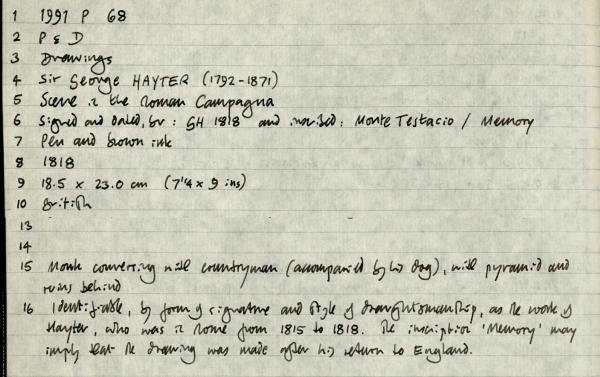 1 1991 P 68
2 P & D
3 Drawings
4 Sir George HAYTER (1792-1871)
5 Scene in the Roman Campagna
6 Signed and dated, br: GH 1818 and inscribed: Monte Testacio / Memory
7 Pen and brown ink
8 1818
9 18.5 x 23.0 cm (7 1/4 x 9 ins)
10 British
13
14
15 Monk conversing with countryman (accompanied by his dog), with pyramid and
ruins behind
16 Identifiable, by form of signature and style of draughtsmanship, as the work of
Hayter, who was in Rome from 1815 to 1818. The inscription 'Memory' may
imply that the drawing was made after his return to England.